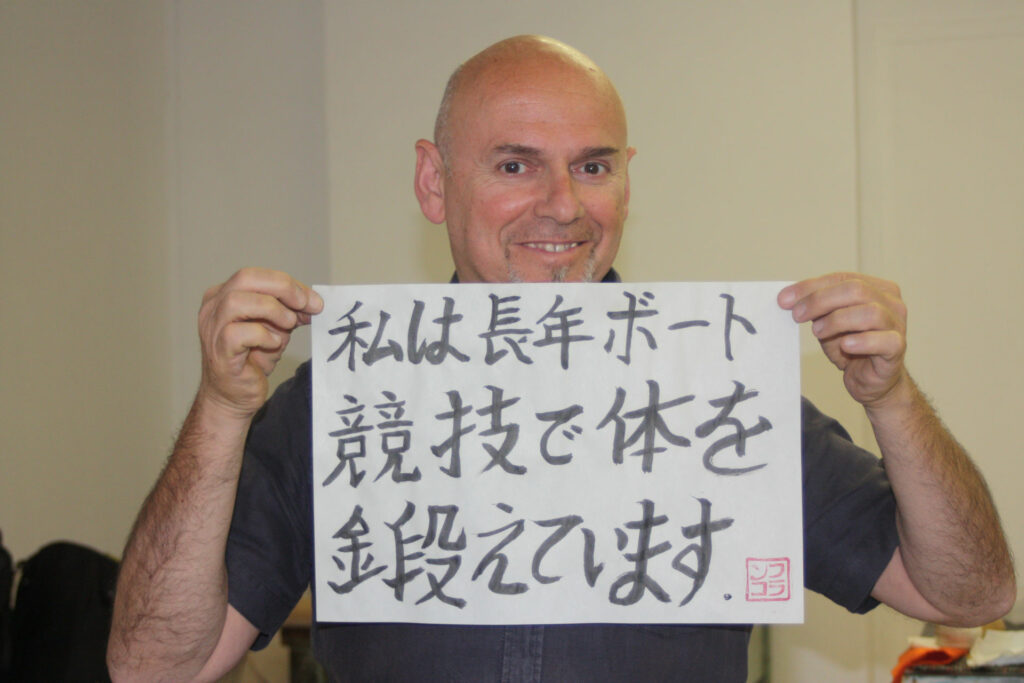 私は長年ボート
競技で体を
鍛えています.
フランコ